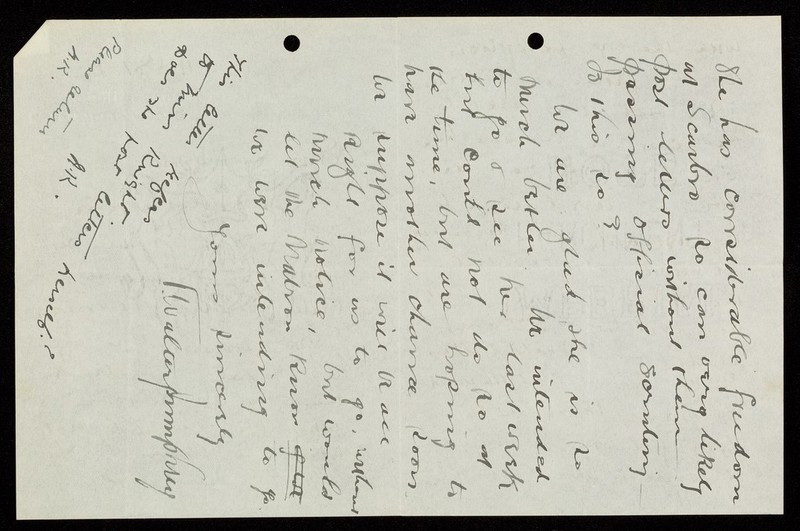 She has considerable freedom
at Scarbro so can very likely
post letters without them
passing official scrutiny
Is this so?
We are glad she is so
much better. We intended
to go & see her last week
but could not do so at
the time, but are hoping to
have another chance soon.
We suppose it will be all
right for us to go, without
much notice, but would
let the Matron know
we were intending to go.
Yours sincerely
This letter
Does Dr
Knight
Please
letters